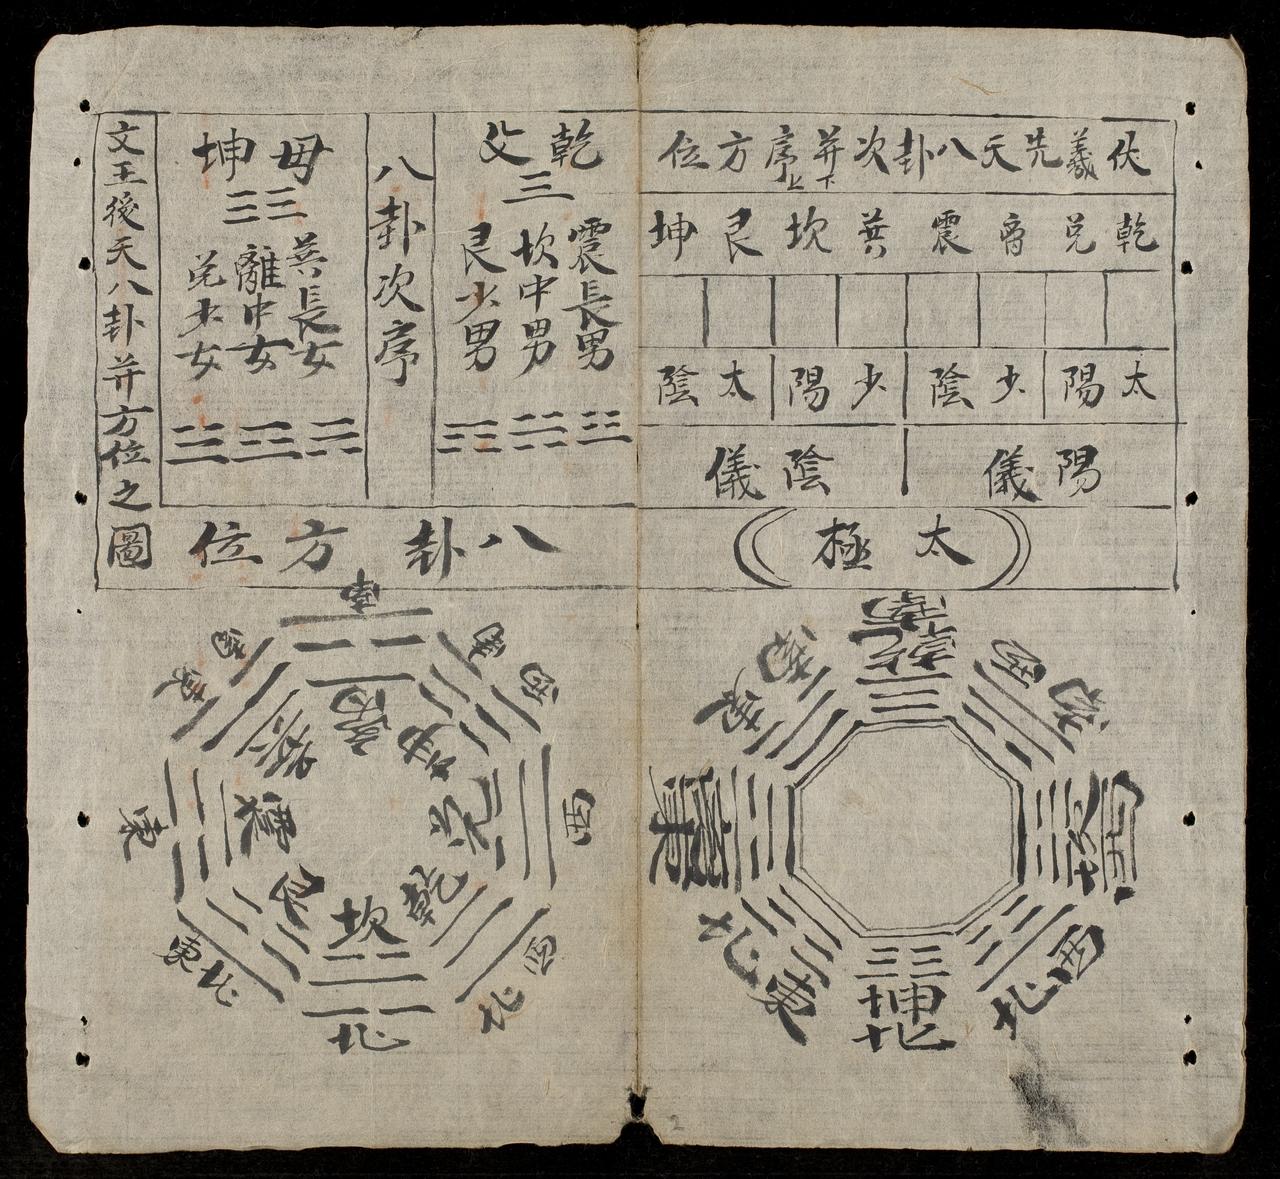 伏羲先天八卦次并序方位
下上
乾兌离震巽坎艮坤
太陽少陰少陽太陰
陽儀陰儀
太極
南
乾
東南
西南
東
離
西
坎
東北
西北
坤
北
乾父
震長男
坎中男
艮少男
八卦次序
母坤
巽長女
離中女
兌少女
文王後天八卦并方位之圖
八卦方位
南
離
東南
巽
西南
坤
東
震
西
兌
東北
艮
西北
乾
坎
北
2